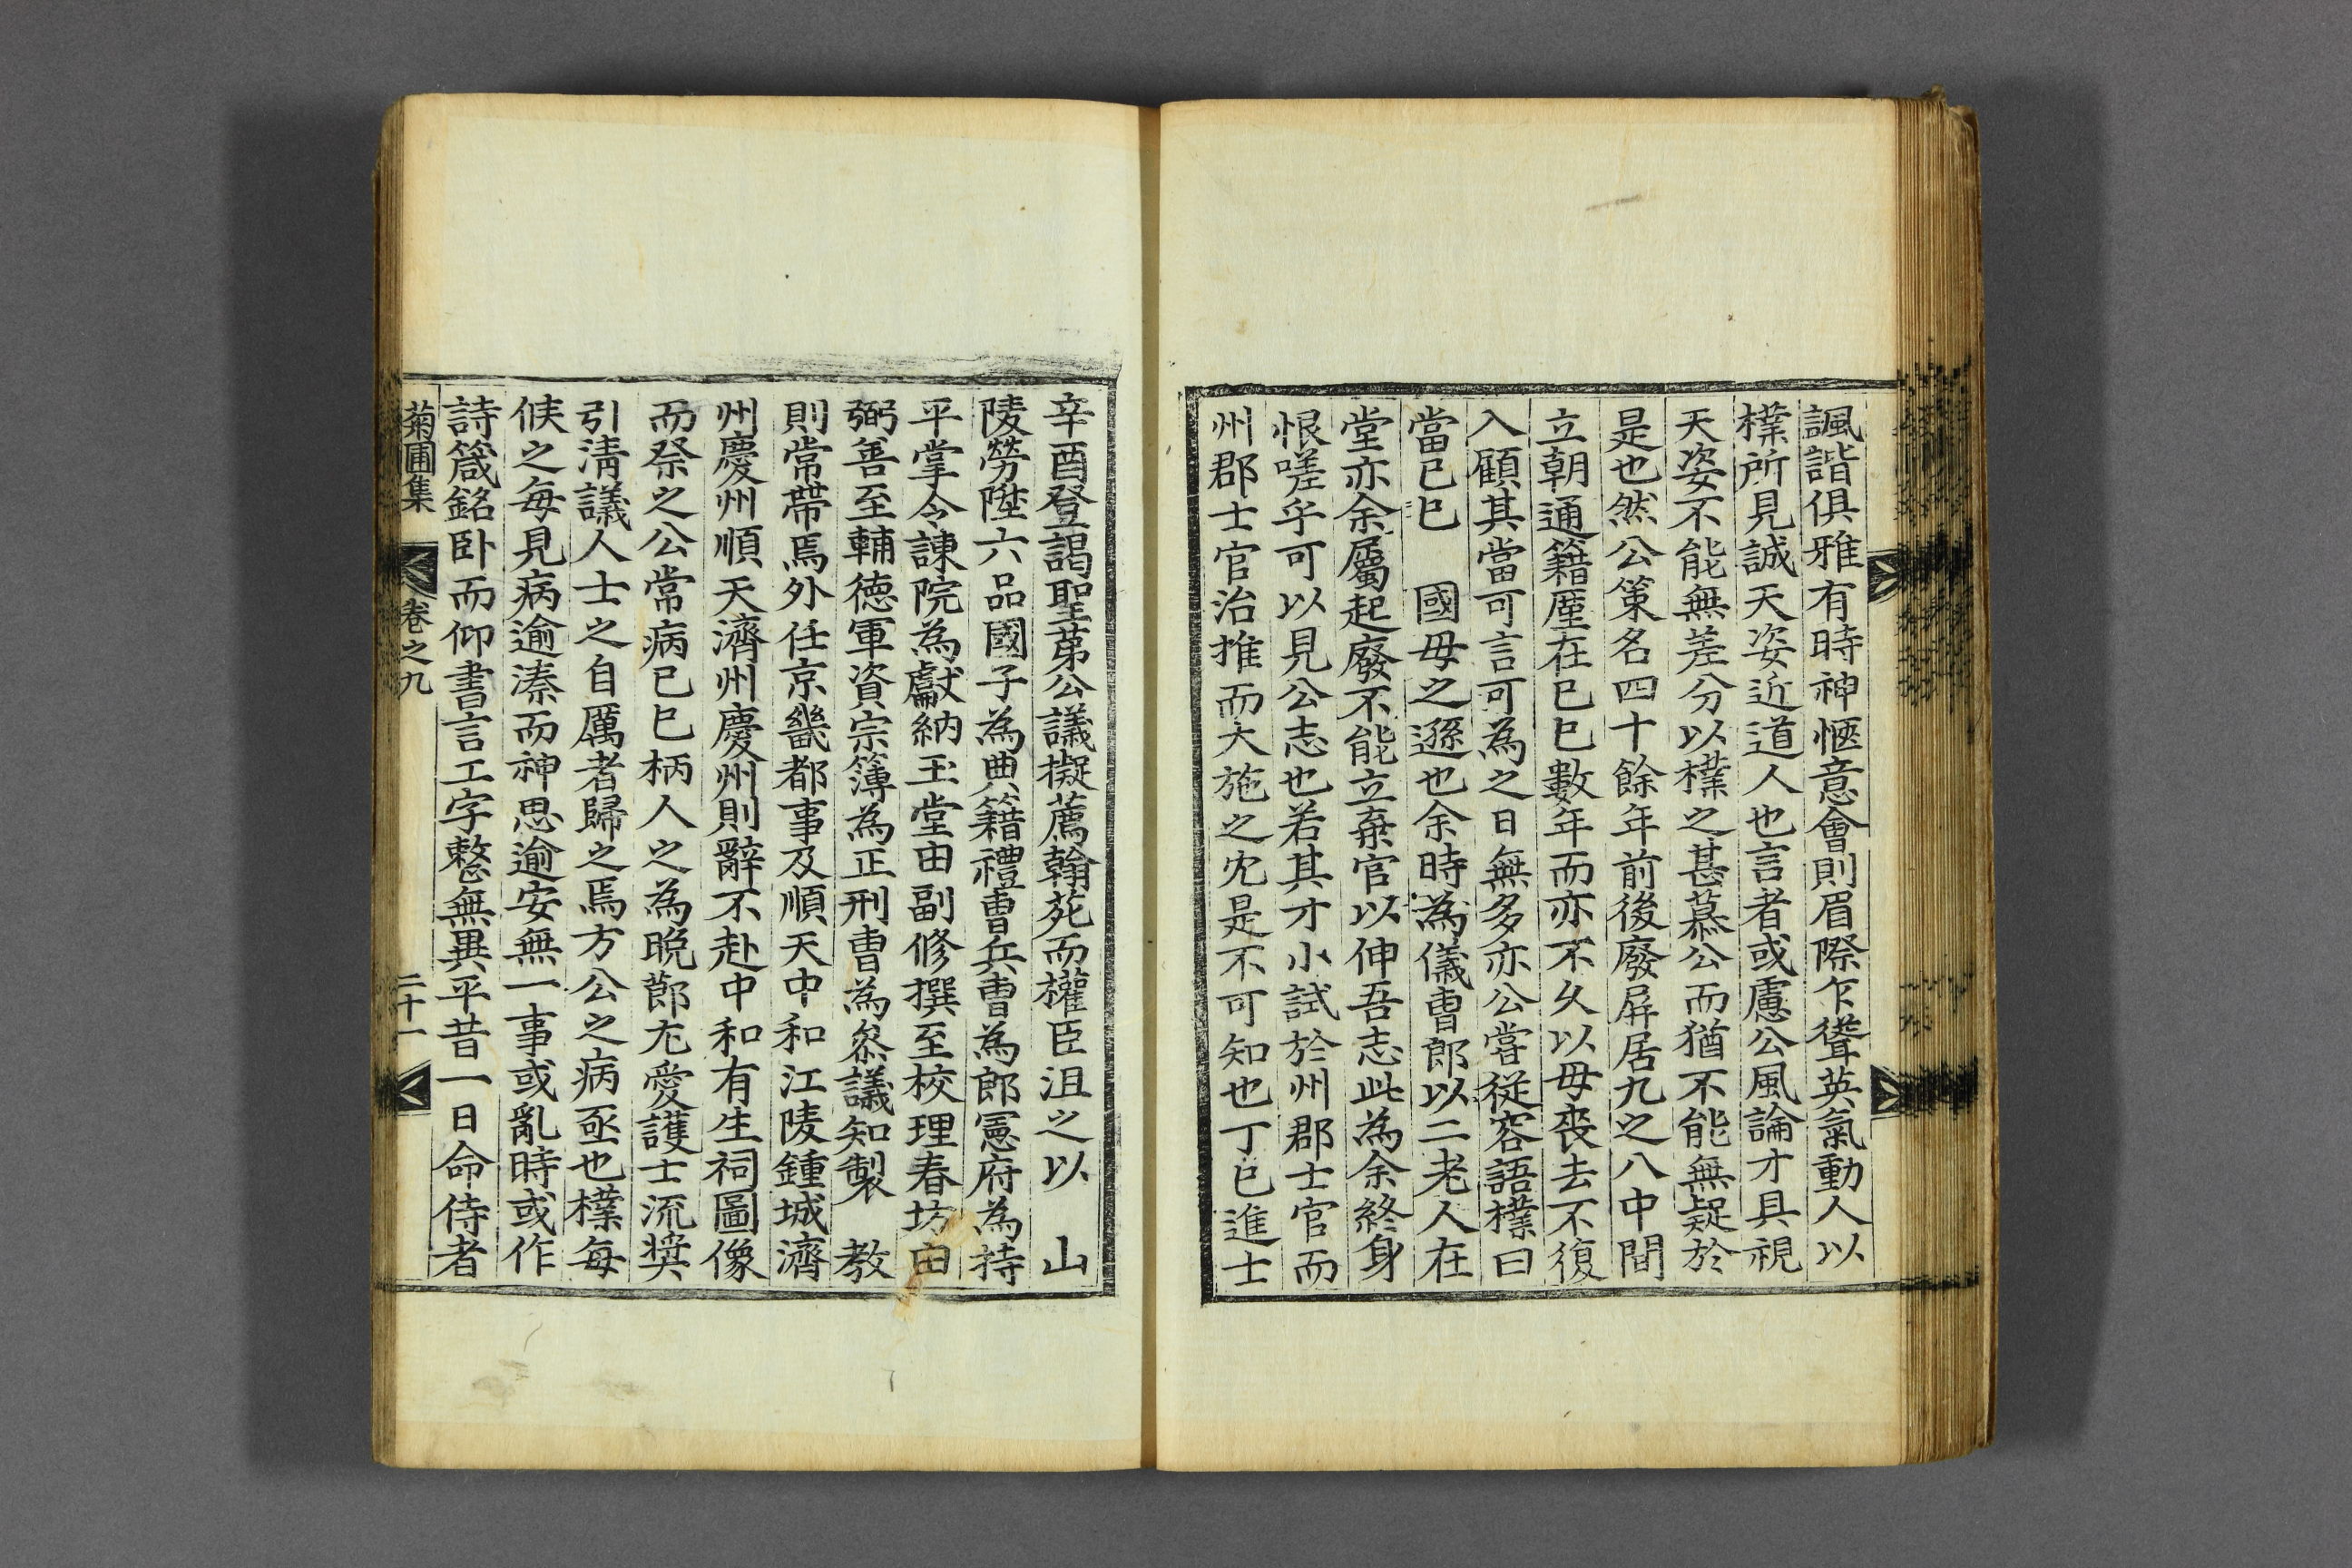 諷諧俱雅有時神愜意會則眉際乍聳英氣動人以
樸所見誠天姿近道人也言者或慮公風論才具視
天姿不能無差分以樸之甚慕公而猶不能無疑於
是也然公策名四十餘年前後廢屏居九之八中間
立朝通籍厪在已巳數年而亦不久以毋喪去不復
入顧其當可言可為之日無多亦公嘗從容語樸曰
當已巳　國母之遜也余時為儀曹郎以二老人在
堂亦余屬起廢不能立棄官以伸吾志此為余終身
恨嗟乎可以見公志也若其才小試於州郡士官而
州郡士官治推而大施之沈是不可知也丁巳進士
辛酉登謁聖第公議擬薦翰苑而權臣沮之以　山
陵勞陞六品國子為典籍禮曹兵曹為郎憲府為持
平掌令諫院為獻納玉堂由副修撰至校理春坊由
弼善至輔德軍資宗簿為正刑曹為叅議知製　教
則常帶焉外任京畿都事及順天中和江陵鍾城濟
州慶州順天濟州慶州則辭不赴中和有生祠圖像
而祭之公常病已巳柄人之為晩節尤愛護士流奬
引清議人士之自厲者歸之焉方公之病亟也樸每
候之每見病逾溱而神思逾安無一事或亂時或作
詩箴銘卧而仰書言工字整無異平昔一日命侍者
菊圃集　卷之九　二十一